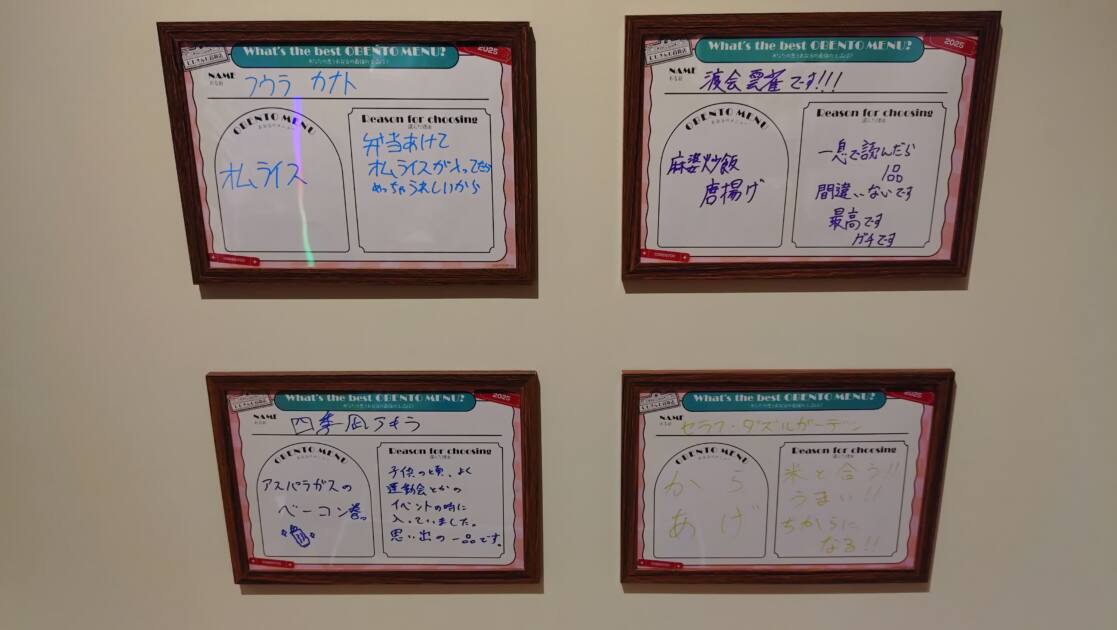 What's the best OBENTO MENU?
2025
NAME
フウラ カナト
OBENTO MENU
オムライス
Reason for choosing
弁当あけて
オムライスが入ってたら
めっちゃうれしいから
What's the best OBENTO MENU?
2025
NAME
渡会雲雀です!!!
OBENTO MENU
麻婆炒飯
唐揚げ
Reason for choosing
選んだ理由
一息で読んだら
1品
間違いないです
最高です
ガチです
What's the best OBENTO MENU?
2025
NAME
四季凪アキラ
OBENTO MENU
アスパラガスの
ベーコン巻き
Reason for choosing
子供の頃、よく
運動会とかの
イベントの時に
入っていました。
思い出の一品です。
What's the best OBENTO MENU?
2025
NAME
セラフ・ダズルガーデン
OBENTO MENU
から
あげ
Reason for choosing
米と合う!!
うまい!!
ちからに
なる!!